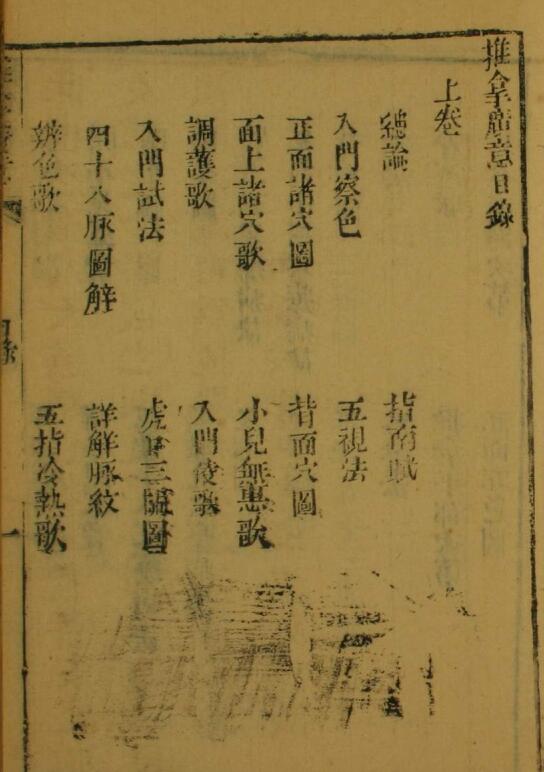 推拿廣意目錄
上卷
總論 指南賦
入門察色 五視法
正面諸穴圖 背面穴圖
面上諸穴歌 小兒無患歌
調護歌 入門候歌
入門試法 虎口三關圖
四十八脈圖解 詳解脈紋
辨色歌 五指冷熱歌
目錄 一